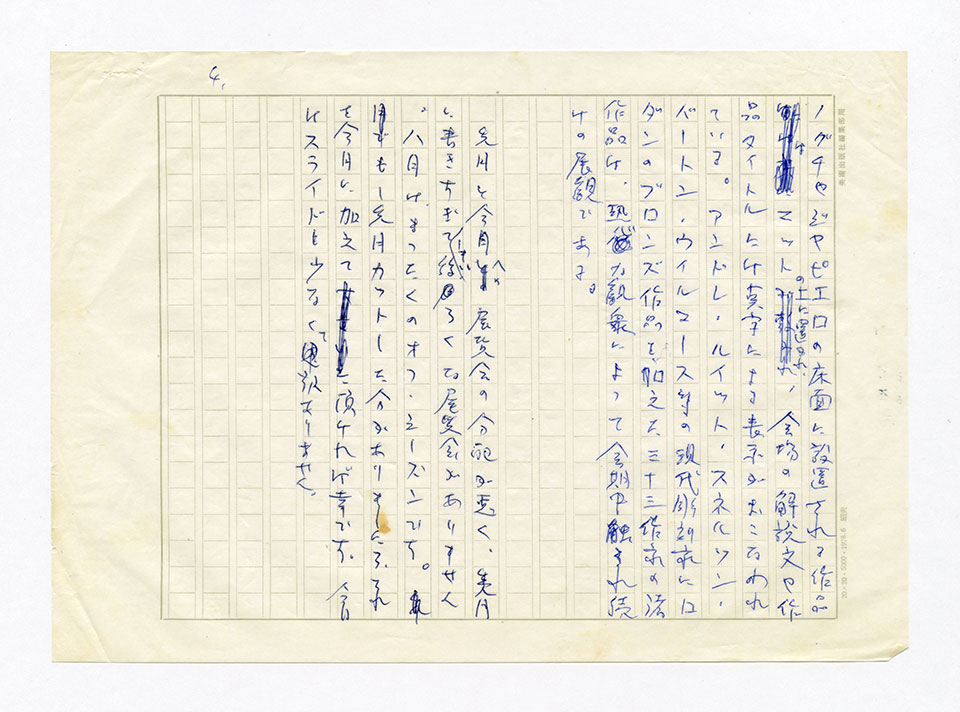 4.
ノグチやジャピエロの床面に設置される作品
はマットの上に置かれ、会場の解説文や作
品タイトルには点字による表示がおこなわれ
ている。アンドレ・ルイット・スネルソン・
バートン・ウイルマース等の現代彫刻家にロ
ダンのブロンズ作品を加えた三十三作家の諸
作品は、熱心な観衆によって会期中触され続
けの展観である。
先月と今月への展覧会の分配が悪く、先月
に書きすぎてしまい後ろくな展覧会がありません
。八月はまったくのオフ・シーズンです。
もし先月カットした分がありましたら、それ
を今月に加えて頂ければ幸です。今月
はスライドも少なくて申訳ありません。
美術出版社編集部用
20×20・5000・1976.4